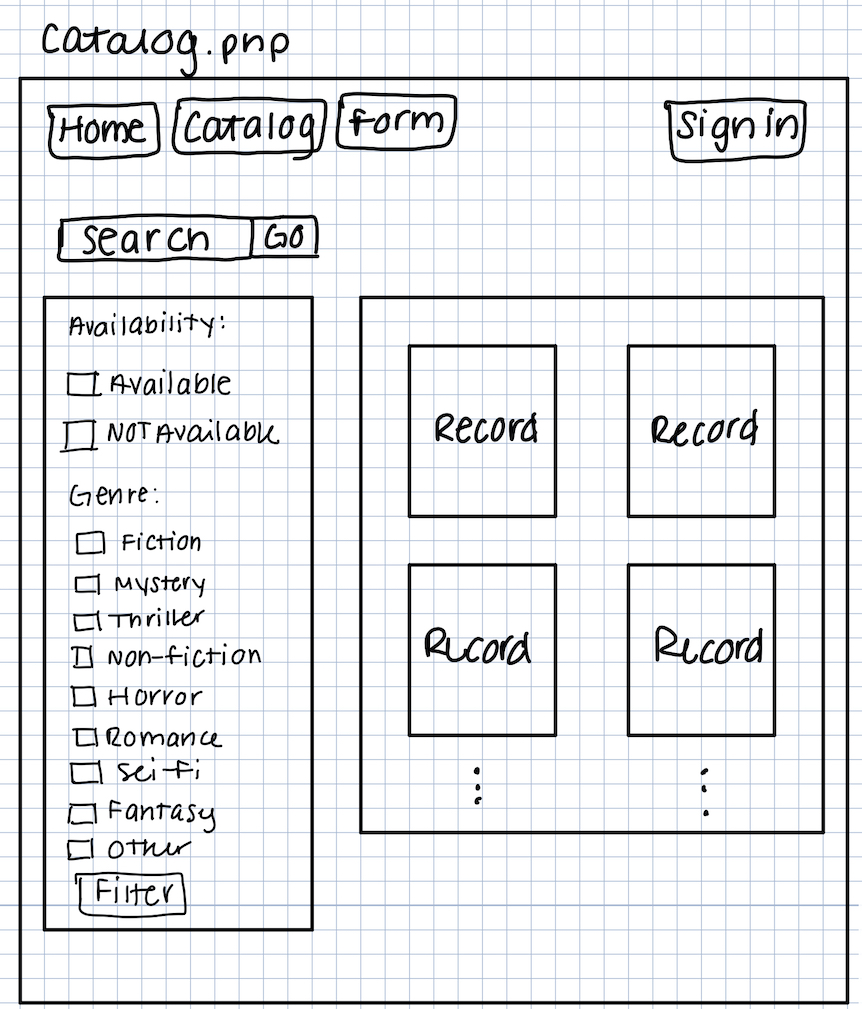 Catalog.php
Home Catalog Form Sign in
Search GO
Availability:
Available
NOT Available
Genre:
Fiction
Mystery
Thriller
Non-fiction
Horror
Romance
Sci-Fi
Fantasy
Other
Filter
Record Record
Record Record